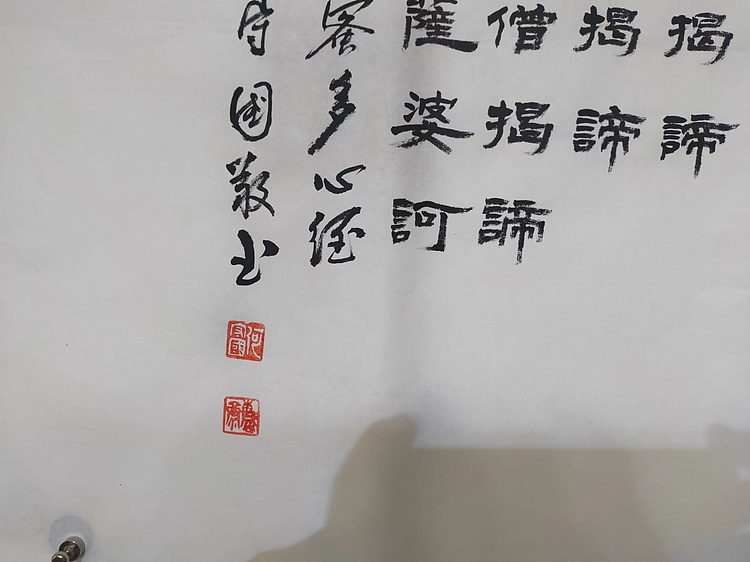 揭諦
揭諦
僧揭諦
薩婆訶
蜜多心經
守國敬書
何守國